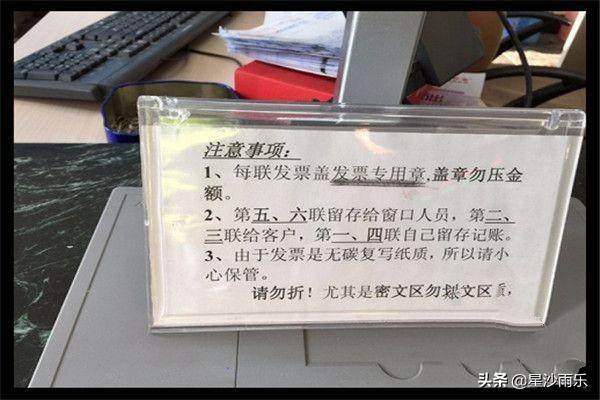 注意事项：
1、每联发票盖发票专用章,盖章勿压金
额。
2、第五、六联留存给窗口人员，第二、
三联给客户，第一、四联自己留存记账。
3、由于发票是无碳复写纸质，所以请小
心保管。
请勿折！尤其是密文区勿 文区
头条 @星沙雨乐